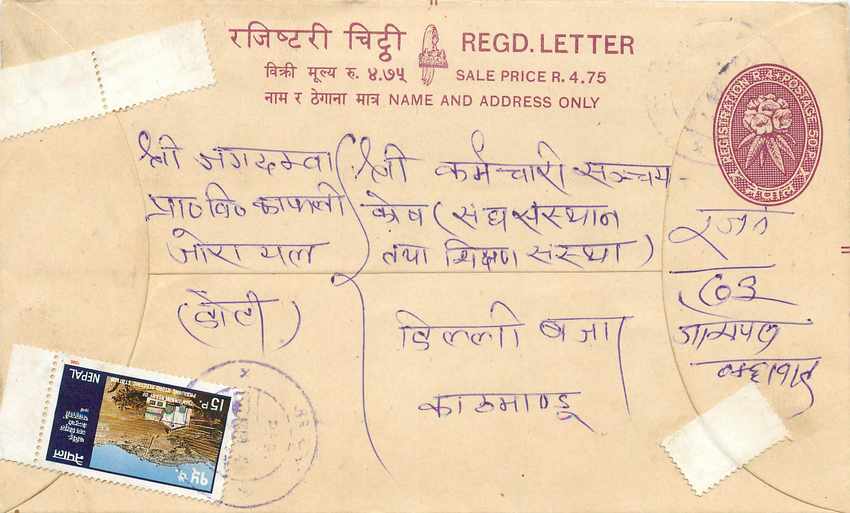 रजिष्टरी चिट्ठी REGD. LETTER
विक्री मूल्य रु. ४.७५ SALE PRICE R. 4.75
नाम र ठेगाना मात्र NAME AND ADDRESS ONLY
REGISTRATION R.4. POSTAGE 50P.
श्री जगदम्वा
प्रा० वि० काफली
जोरायल
(डोटी)
श्री कर्मचारी सञ्चय
कोष (संघ संस्थान
तथा शिक्षण संस्था)
डिल्ली बजार
काठमाण्डू
रजि
NEPAL
15 P.
१५ पै.
नेपाल